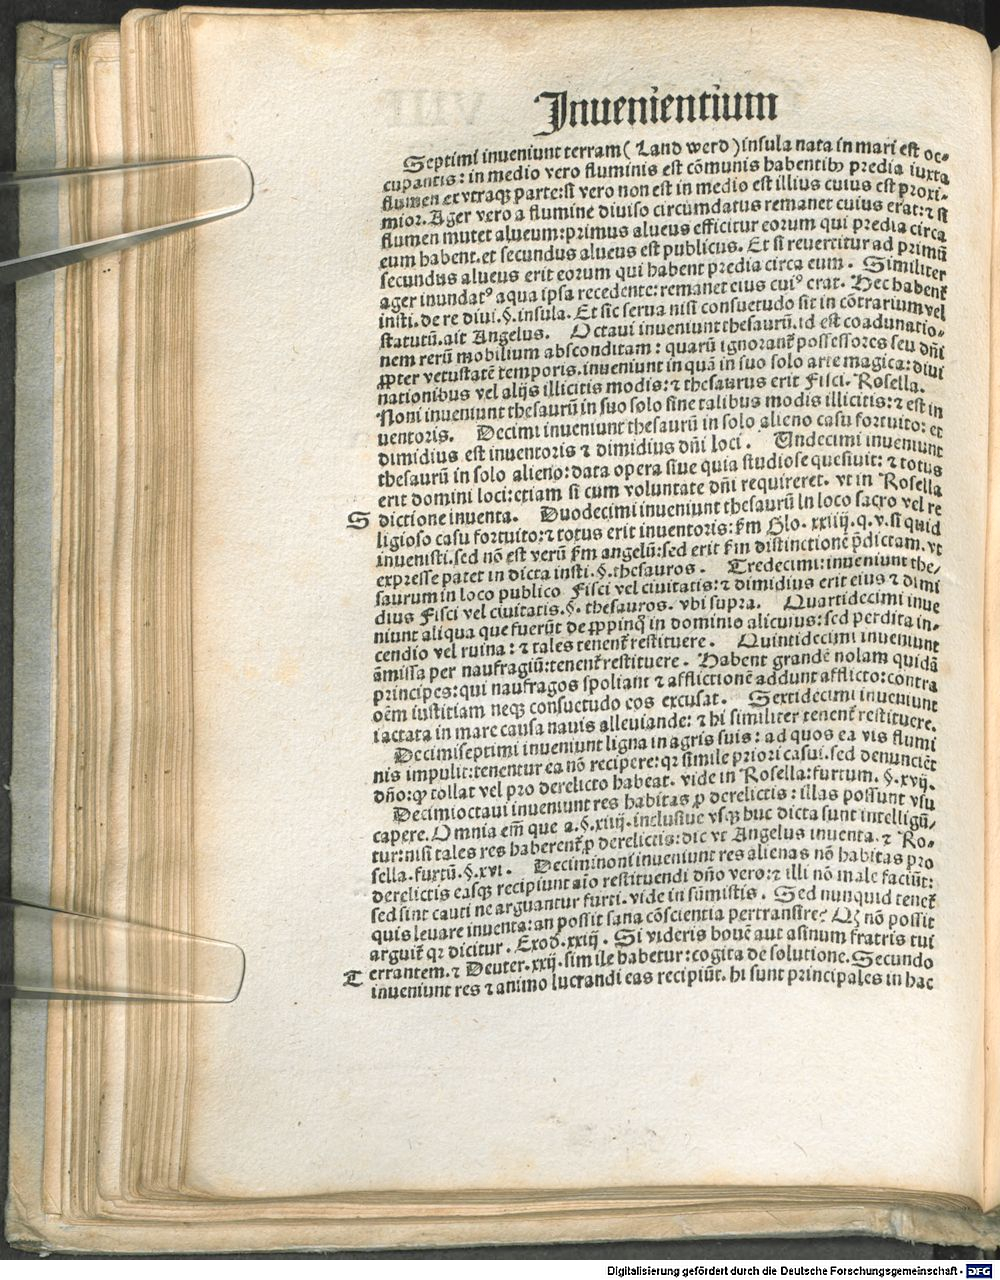 Inuenientium
Septimi inveniunt terram( Land werd )insula nata in mari est oc⸗
cupantis: in medio vero fluminis est cõmunis habentibꝫ predia iuxta
flumen ex vtraqꝫ parte:si vero non est in medio est illius cuius est proxi⸗
mior. Ager vero a flumine diuiso circumdatus remanet cuius erat:⁊ si
flumen mutet alueum:primus alueus efficitur eorum qui predia circa
eum habent.et secundus alueus est publicus. Et si reuertitur ad primũ
secundus alueus erit eorum qui habent predia circa eum. Similiter
ager inundatꝰ aqua ipsa recedente:remanet eius cuiꝰ erat. Hec habent᷑
insti. de re diui.§.insula. Et sic serua nisi consuetudo sit in cõtrarium vel
statutũ.ait Angelus. Octaui inveniunt thesaurũ.id est coadunatio⸗
nem rerũ mobilium absconditam: quarũ ignorant᷑ possessores seu dñi
ꝓpter vetustatẽ temporis.inveniunt inquã in suo solo arte magica:diui
nationibus vel alijs illicitis modis:⁊ thesaurus erit Fisci. Rosella.
Noni inveniunt thesaurũ in suo solo sine talibus modis illicitis:⁊ est in
uentoris. Decimi inveniunt thesaurũ in solo alieno casu fortuito: et
dimidius est inventoris ⁊ dimidius dñi loci. Undecimi inveniunt
thesaurũ in solo alieno:data opera siue quia studiose quesiuit: ⁊ totus
erit domini loci:etiam si cum voluntate dñi requireret. vt in Rosella
S dictione inuenta. Duodecimi inveniunt thesaurũ in loco sacro vel re
ligioso casu fortuito:⁊ totus erit inuentoris: ẜm Glo. xxiiij.q.v.si quid
invenisti.sed nõ est verũ ẜm angelũ:sed erit ẜm distinctionẽ p̃dictam.vt
expresse patet in dicta insti.§.thesauros. Tredecimi:inveniunt the⸗
saurum in loco publico Fisci vel civitatis:⁊ dimidius erit eius ⁊ dimi
dius Fisci vel civitatis.§. thesauros. vbi supra. Quartidecimi inue
niunt aliqua que fuerũt de ꝓpinqͥ in dominio alicuius:sed perdita in⸗
cendio vel ruina: ⁊ tales tenent᷑ restituere. Quintidecimi inveniunt
amissa per naufragiũ:tenent᷑ restituere. Habent grandẽ nolam quidã
principes:qui naufragos spoliant ⁊ afflictionẽ addunt afflicto:contra
oẽm iustitiam neqꝫ consuetudo eos excusat. Sextidecimi inveniunt
iactata in mare causa nauis alleviande: ⁊ hi similiter tenent᷑ restituere.
Decimiseptimi inveniunt ligna in agris suis: ad quos ea vis flumi
nis impulit:tenentur ea nõ recipere:qꝛ simile priori casui.sed denunciẽt
dño:ꝙ tollat vel pro derelicto habeat. vide in Rosella:furtum. §.xvij.
Decimioctaui inveniunt res habitas ꝓ derelictis: illas possunt vsu
capere. Omnia em̃ que a.§.xiiij.inclusiue vsqꝫ huc dicta sunt intelligũ⸗
tur:nisi tales res haberent᷑ ꝓ derelictis:dic vt Angelus inuenta. ⁊ Ro⸗
sella.furtũ.§.xvi. Deciminoni inveniunt res alienas nõ habitas pro
derelictis easqꝫ recipiunt aĩo restituendi dño vero:⁊ illi nõ male faciũt:
sed sint cauti ne arguantur furti. vide in sũmistis. Sed nunquid tenet᷑
quis leuare inuenta:an possit sana cõscientia pertransire? Qꝫ nõ possit
arguit᷑ qꝛ dicitur. Exod.xxiij. Si videris bouẽ aut asinum fratris tui
T errantem.⁊ Deuter.xxij.simile habetur:cogita de solutione. Secundo
inveniunt res ⁊ animo lucrandi eas recipiũt. hi sunt principales in hac
Digitalisierung gefördert durch die Deutsche Forschungsgemeinschaft - DFG